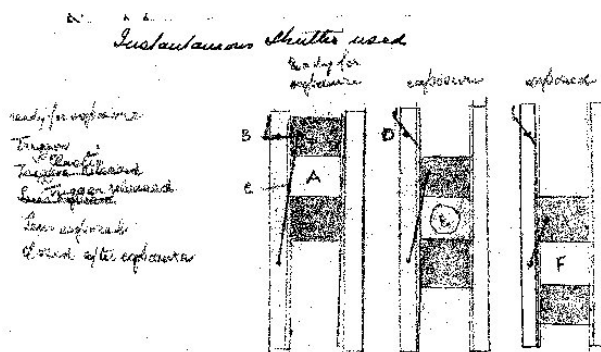 Instantaneous Shutter used
ready for exposure
exposure
exposed
ready for exposure
Trigger
Elastic
Trigger released
Trigger released
Lens exposed
Closed after exposure
B
A
C
D
E
F